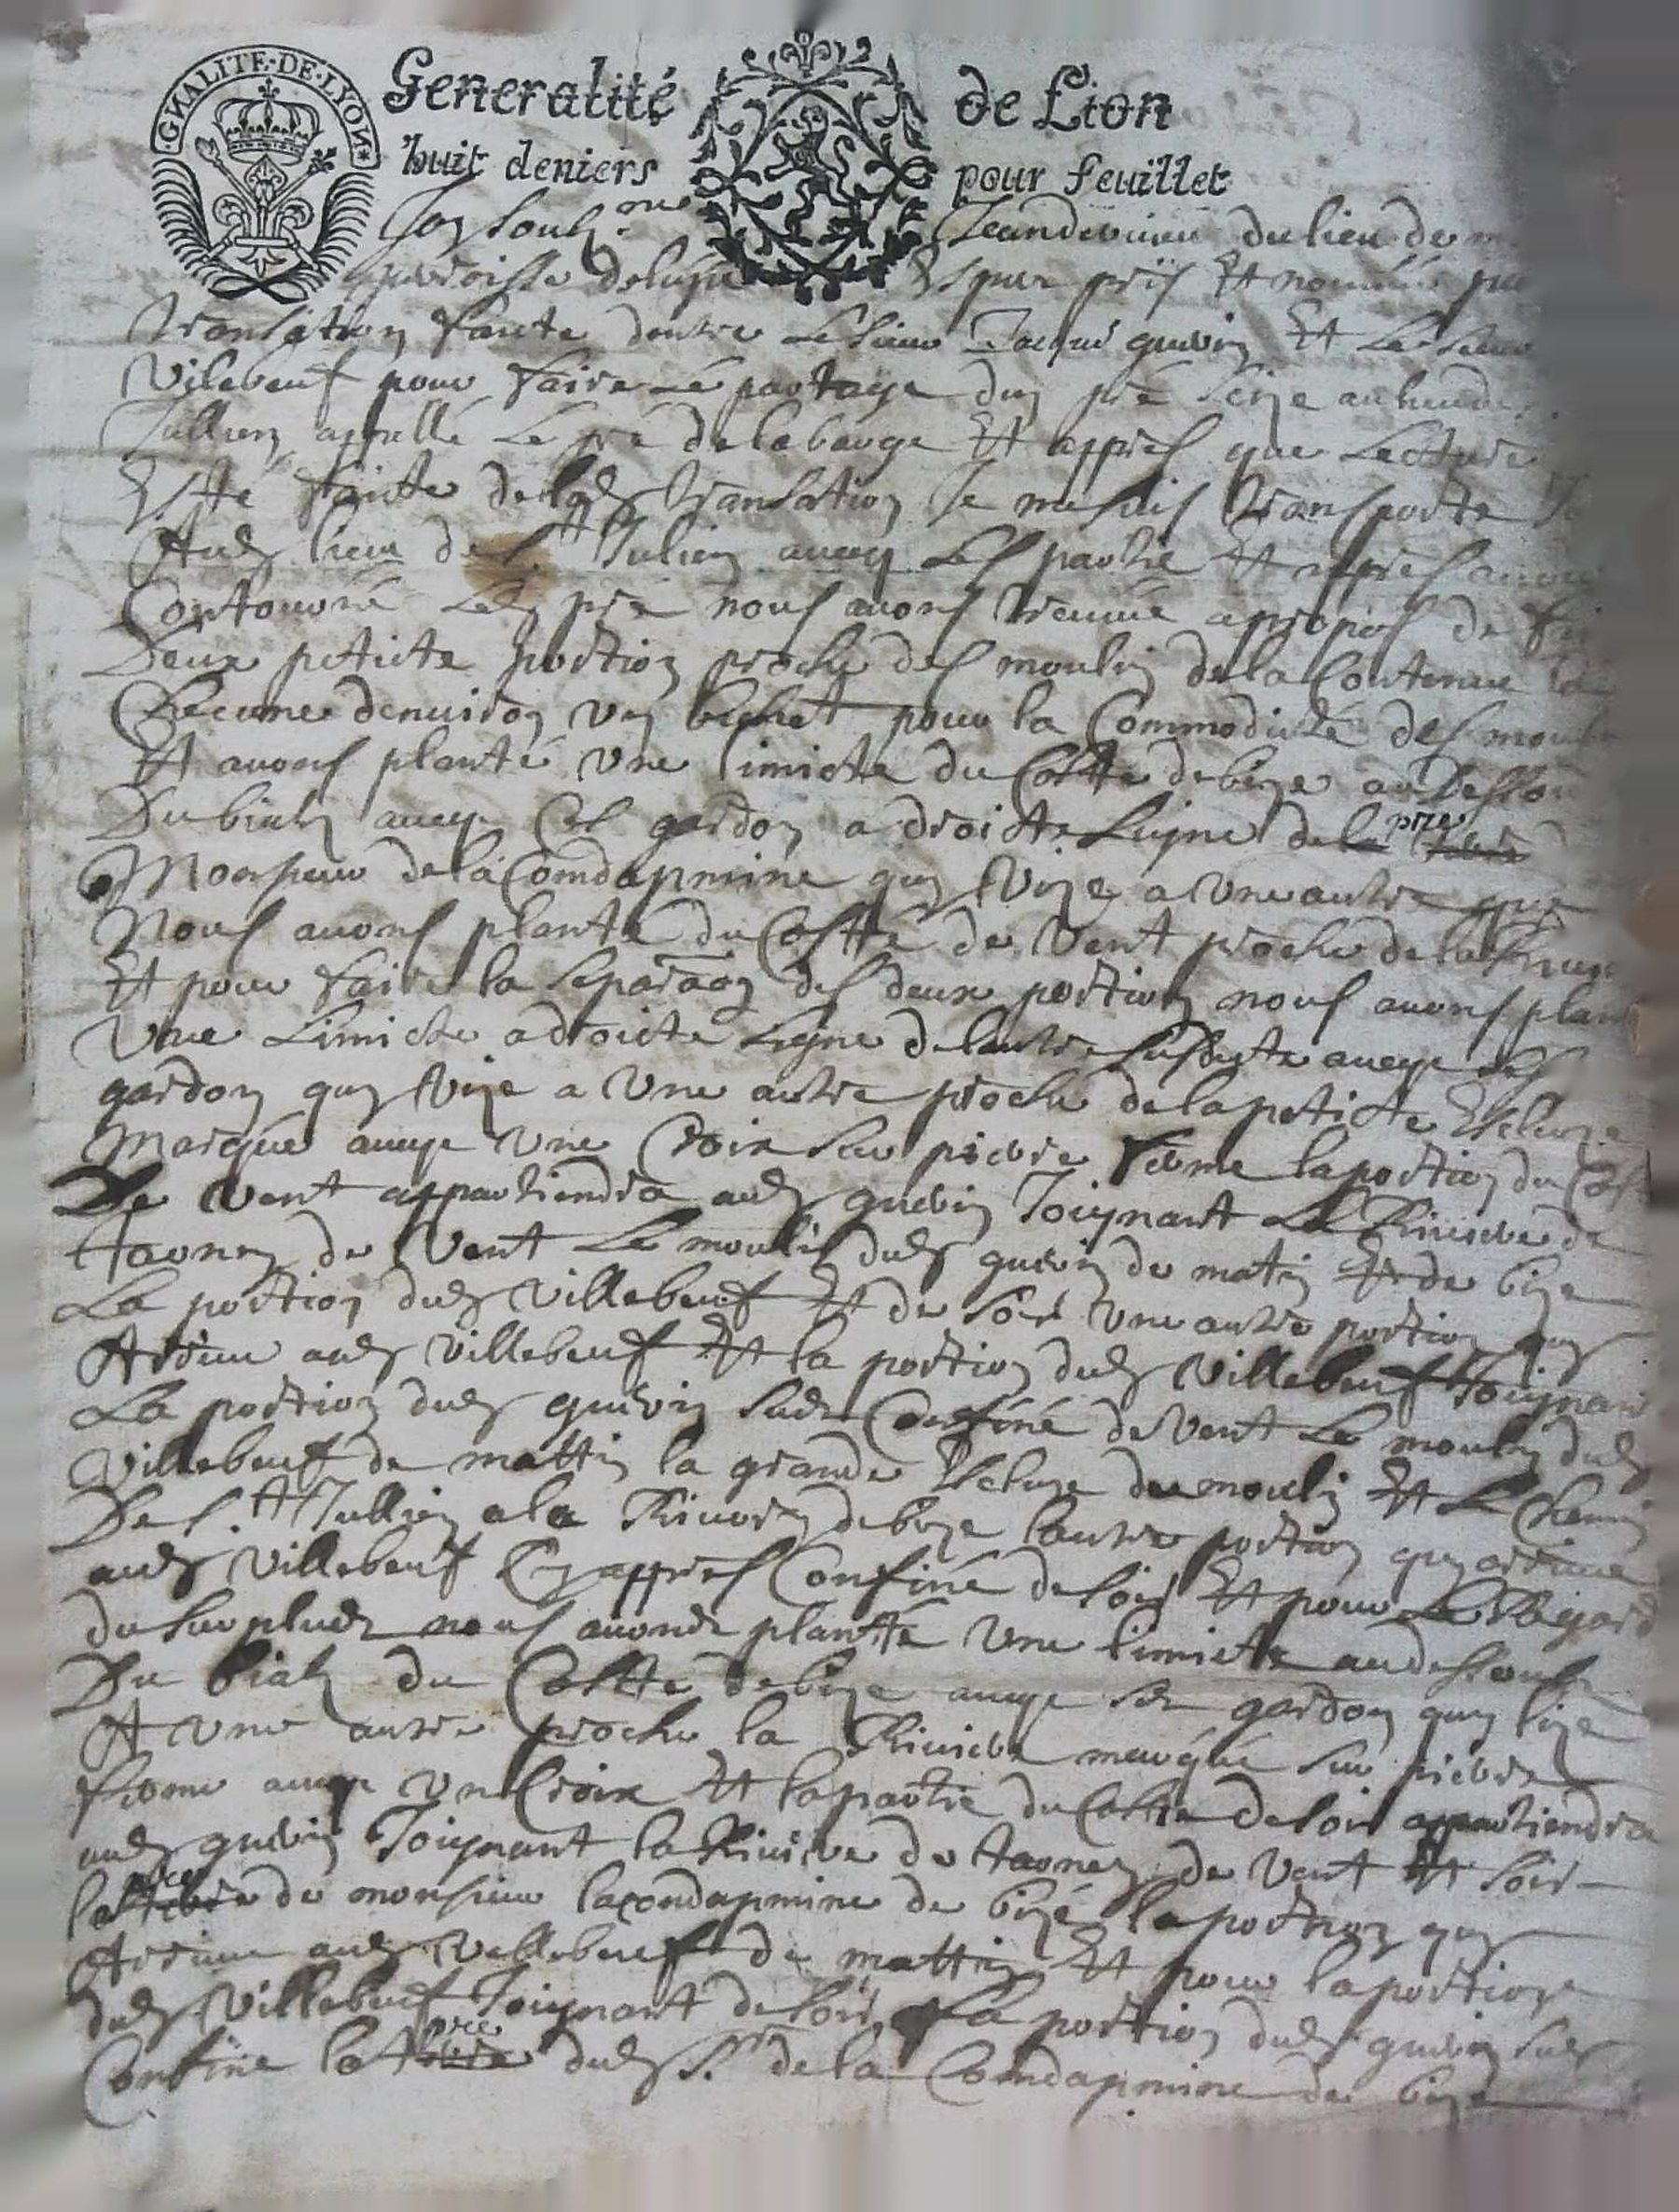 GNALITE·DE·LYON
Generalité de Lion
huit deniers pour feuillet
Joy soubz.né Jean du lieu de
paroisse de Expert pris Et nommé par
transation faicte dentre Le sieur Jacque guerin Et Le sieur
Vilebeuf pour faire Le partage dun pré size au lieu de
Jullien appellé Le pré de la bauge Et appres que Lecture
Esté faicte de lad. transation Je me suis transporté
Aud. lieu de S.t Julien aveq Les partie Et apres avoir
Contourné Led. pré nous avons treuvé a propos de
Deux petitte portion proche des moulin de la Contenue
Checune denviron un bichet pour la Commodicté des moulin
Et avons planté une limitte du Costté de bize au dessou
Du bialz aveq Ces gardon a droicte Ligne de la pré
Monsieur de la Comdapmine quy Vize a une autre que
Nous avons planté du Costté de Vent proche de la
Et pour faire la separaōn des deux portion nous avons plan
Une Limicte a droicte Ligne de lautre susdicte aveq ses
gardon quy Vize a Une autre proche de la petitte Escluze
Marqué aveq Une Croix sur pierre ferme la portion du Cos
De Vent appartiendra aud. guerin Joignant La Riviere de
de Vent Le moulin dud. guerin de matin Et de bize
La portion dud. Villebeuf Et de soir une autre portion quy
Arrive aud. Villebeuf Et la portion dud. Villebeuf Joignan
La portion dud. guerin sud. Confiné de Vent Le moulin dud.
Villebeuf de mattin la grande Escluze du moulin Et Le Chemin
De S.t Jullien a la de bize lautre portion quy arrive
aud. Villebeuf Cy appres Confiné de soir Et pour Le Regard
du surplus nous avons planté Une limicte au dessoubz
Du bialz du Costté de bize aveq ses gardon quy Vize
A une autre proche la Riviere marqué sur pierre
ferme aveq un Croix Et la partie du Costté de soir appartiendra
aud. guerin Joignant la Riviere de de Vent Et soir
la pré de monsieur la condapmine de bizé la portion quy
Arrive aud. Villebeuf de mattin Et pour la portion
dud. Villebeuf Joignant de soir La portion dud. guerin sud.
Confine la pré dud. S.r de la Comdapmine de bize